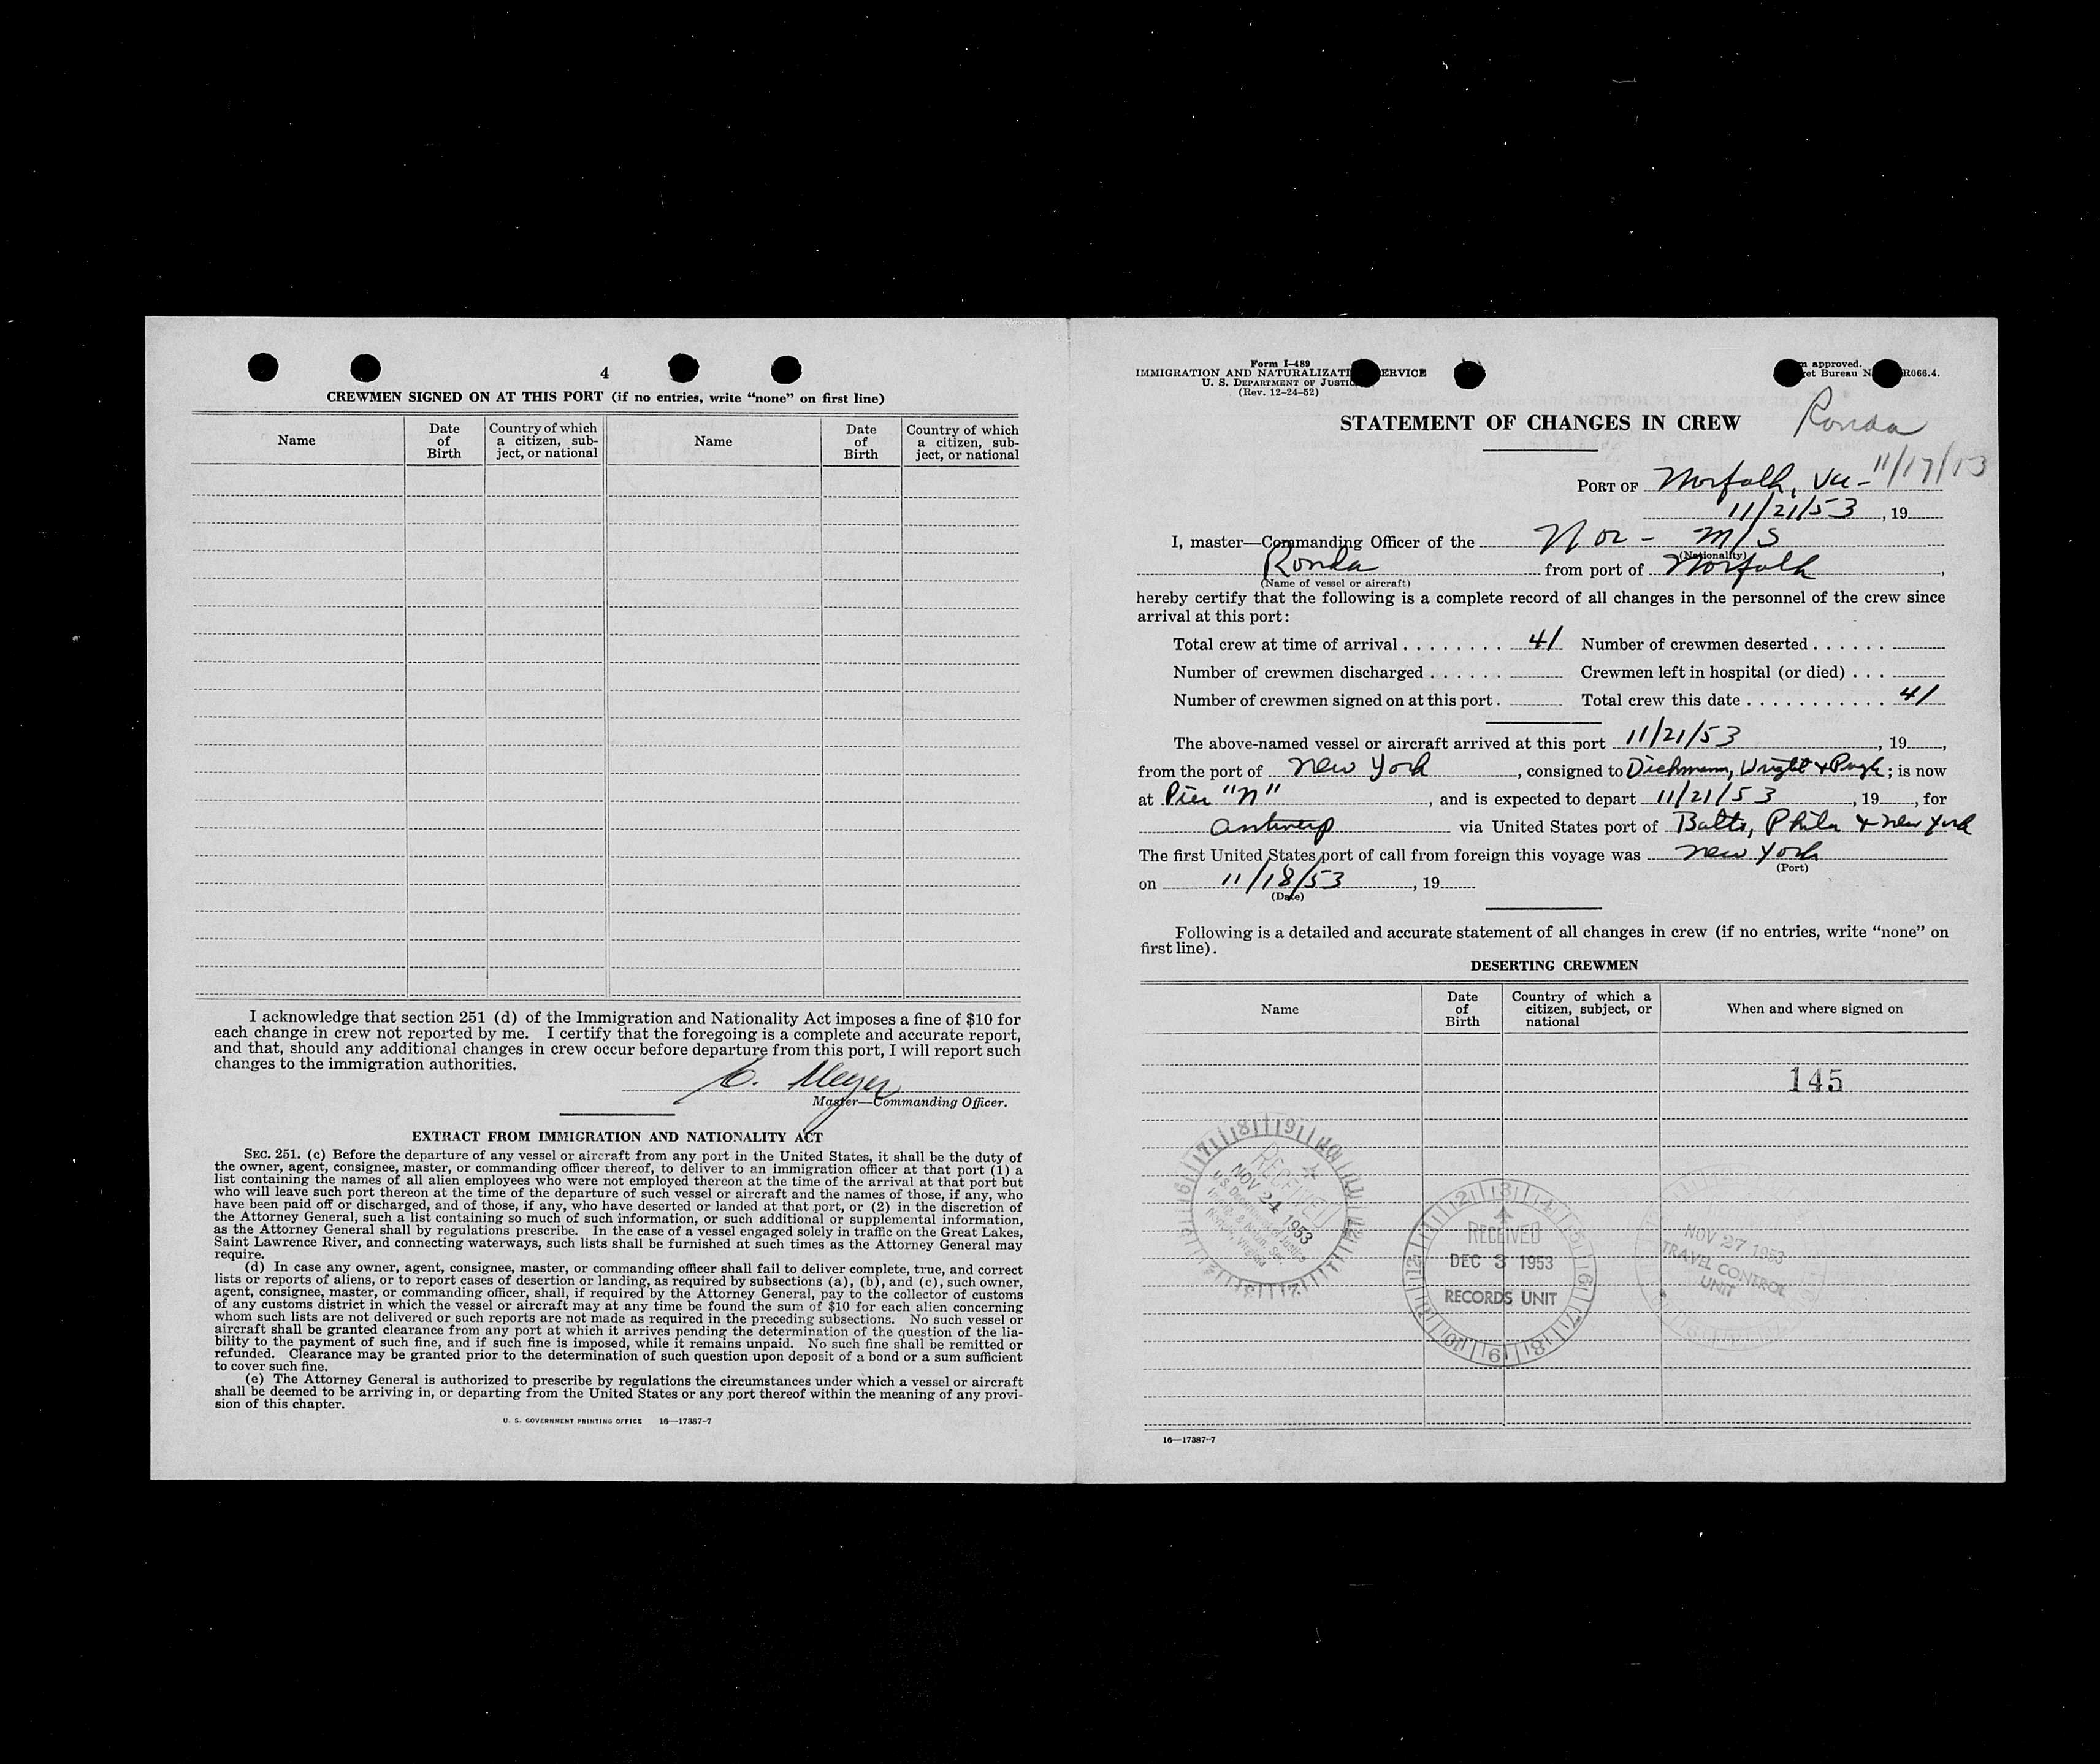 4
CREWMEN SIGNED ON AT THIS PORT (if no entries, write “none” on first line)
Name
Date of Birth
Country of which a citizen, sub-ject, or national
Name
Date of Birth
Country of which a citizen, sub-ject, or national
I acknowledge that section 251 (d) of the Immigration and Nationality Act imposes a fine of $10 for
each change in crew not reported by me. I certify that the foregoing is a complete and accurate report,
and that, should any additional changes in crew occur before departure from this port, I will report such
changes to the immigration authorities.
C. Meyer
Master—Commanding Officer.
EXTRACT FROM IMMIGRATION AND NATIONALITY ACT
SEC. 251. (c) Before the departure of any vessel or aircraft from any port in the United States, it shall be the duty of
the owner, agent, consignee, master, or commanding officer thereof, to deliver to an immigration officer at that port (1) a
list containing the names of all alien employees who were not employed thereon at the time of the arrival at that port but
who will leave such port thereon at the time of the departure of such vessel or aircraft and the names of those, if any, who
have been paid off or discharged, and of those, if any, who have deserted or landed at that port, or (2) in the discretion of
the Attorney General, such a list containing so much of such information, or such additional or supplemental information,
as the Attorney General shall by regulations prescribe. In the case of a vessel engaged solely in traffic on the Great Lakes,
Saint Lawrence River, and connecting waterways, such lists shall be furnished at such times as the Attorney General may
require.
(d) In case any owner, agent, consignee, master, or commanding officer shall fail to deliver complete, true, and correct
lists or reports of aliens, or to report cases of desertion or landing, as required by subsections (a), (b), and (c), such owner,
agent, consignee, master, or commanding officer, shall, if required by the Attorney General, pay to the collector of customs
of any customs district in which the vessel or aircraft may at any time be found the sum of $10 for each alien concerning
whom such lists are not delivered or such reports are not made as required in the preceding subsections. No such vessel or
aircraft shall be granted clearance from any port at which it arrives pending the determination of the question of the lia-
bility to the payment of such fine, and if such fine is imposed, while it remains unpaid. No such fine shall be remitted or
refunded. Clearance may be granted prior to the determination of such question upon deposit of a bond or a sum sufficient
to cover such fine.
(e) The Attorney General is authorized to prescribe by regulations the circumstances under which a vessel or aircraft
shall be deemed to be arriving in, or departing from the United States or any port thereof within the meaning of any provi-
sion of this chapter.
U. S. GOVERNMENT PRINTING OFFICE 16—17387-7
Form I-489
IMMIGRATION AND NATURALIZATI ERVICE
U. S. DEPARTMENT OF JUSTIC
(Rev. 12-24-52)
m approved.
et Bureau N R066.4.
STATEMENT OF CHANGES IN CREW
Ronda
11/17/53
PORT OF Norfolk, Va-
11/21/53, 19
I, master—Commanding Officer of the Nor - M/S
(Nationality)
Ronda from port of Norfolk,
(Name of vessel or aircraft)
hereby certify that the following is a complete record of all changes in the personnel of the crew since
arrival at this port:
Total crew at time of arrival . . . . . . . . 41 Number of crewmen deserted . . . . . .
Number of crewmen discharged . . . . . . Crewmen left in hospital (or died) . . .
Number of crewmen signed on at this port . Total crew this date . . . . . . . . . . . 41
The above-named vessel or aircraft arrived at this port 11/21/53, 19,
from the port of New York, consigned to Dichmann, Wright & Pugh; is now
at Pier "N", and is expected to depart 11/21/53, 19, for
Antwerp via United States port of Balto, Phila & New York
The first United States port of call from foreign this voyage was New York
(Port)
on 11/18/53, 19
(Date)
Following is a detailed and accurate statement of all changes in crew (if no entries, write “none” on
first line).
DESERTING CREWMEN
Name
Date of Birth
Country of which a citizen, subject, or national
When and where signed on
145
RECEIVED
NOV 24 1953
U.S. Department of Justice
Immig. & Natzn. Ser.
Norfolk, Virginia
RECEIVED
DEC 3 1953
RECORDS UNIT
NOV 27 1953
TRAVEL CONTROL
UNIT
16—17387-7